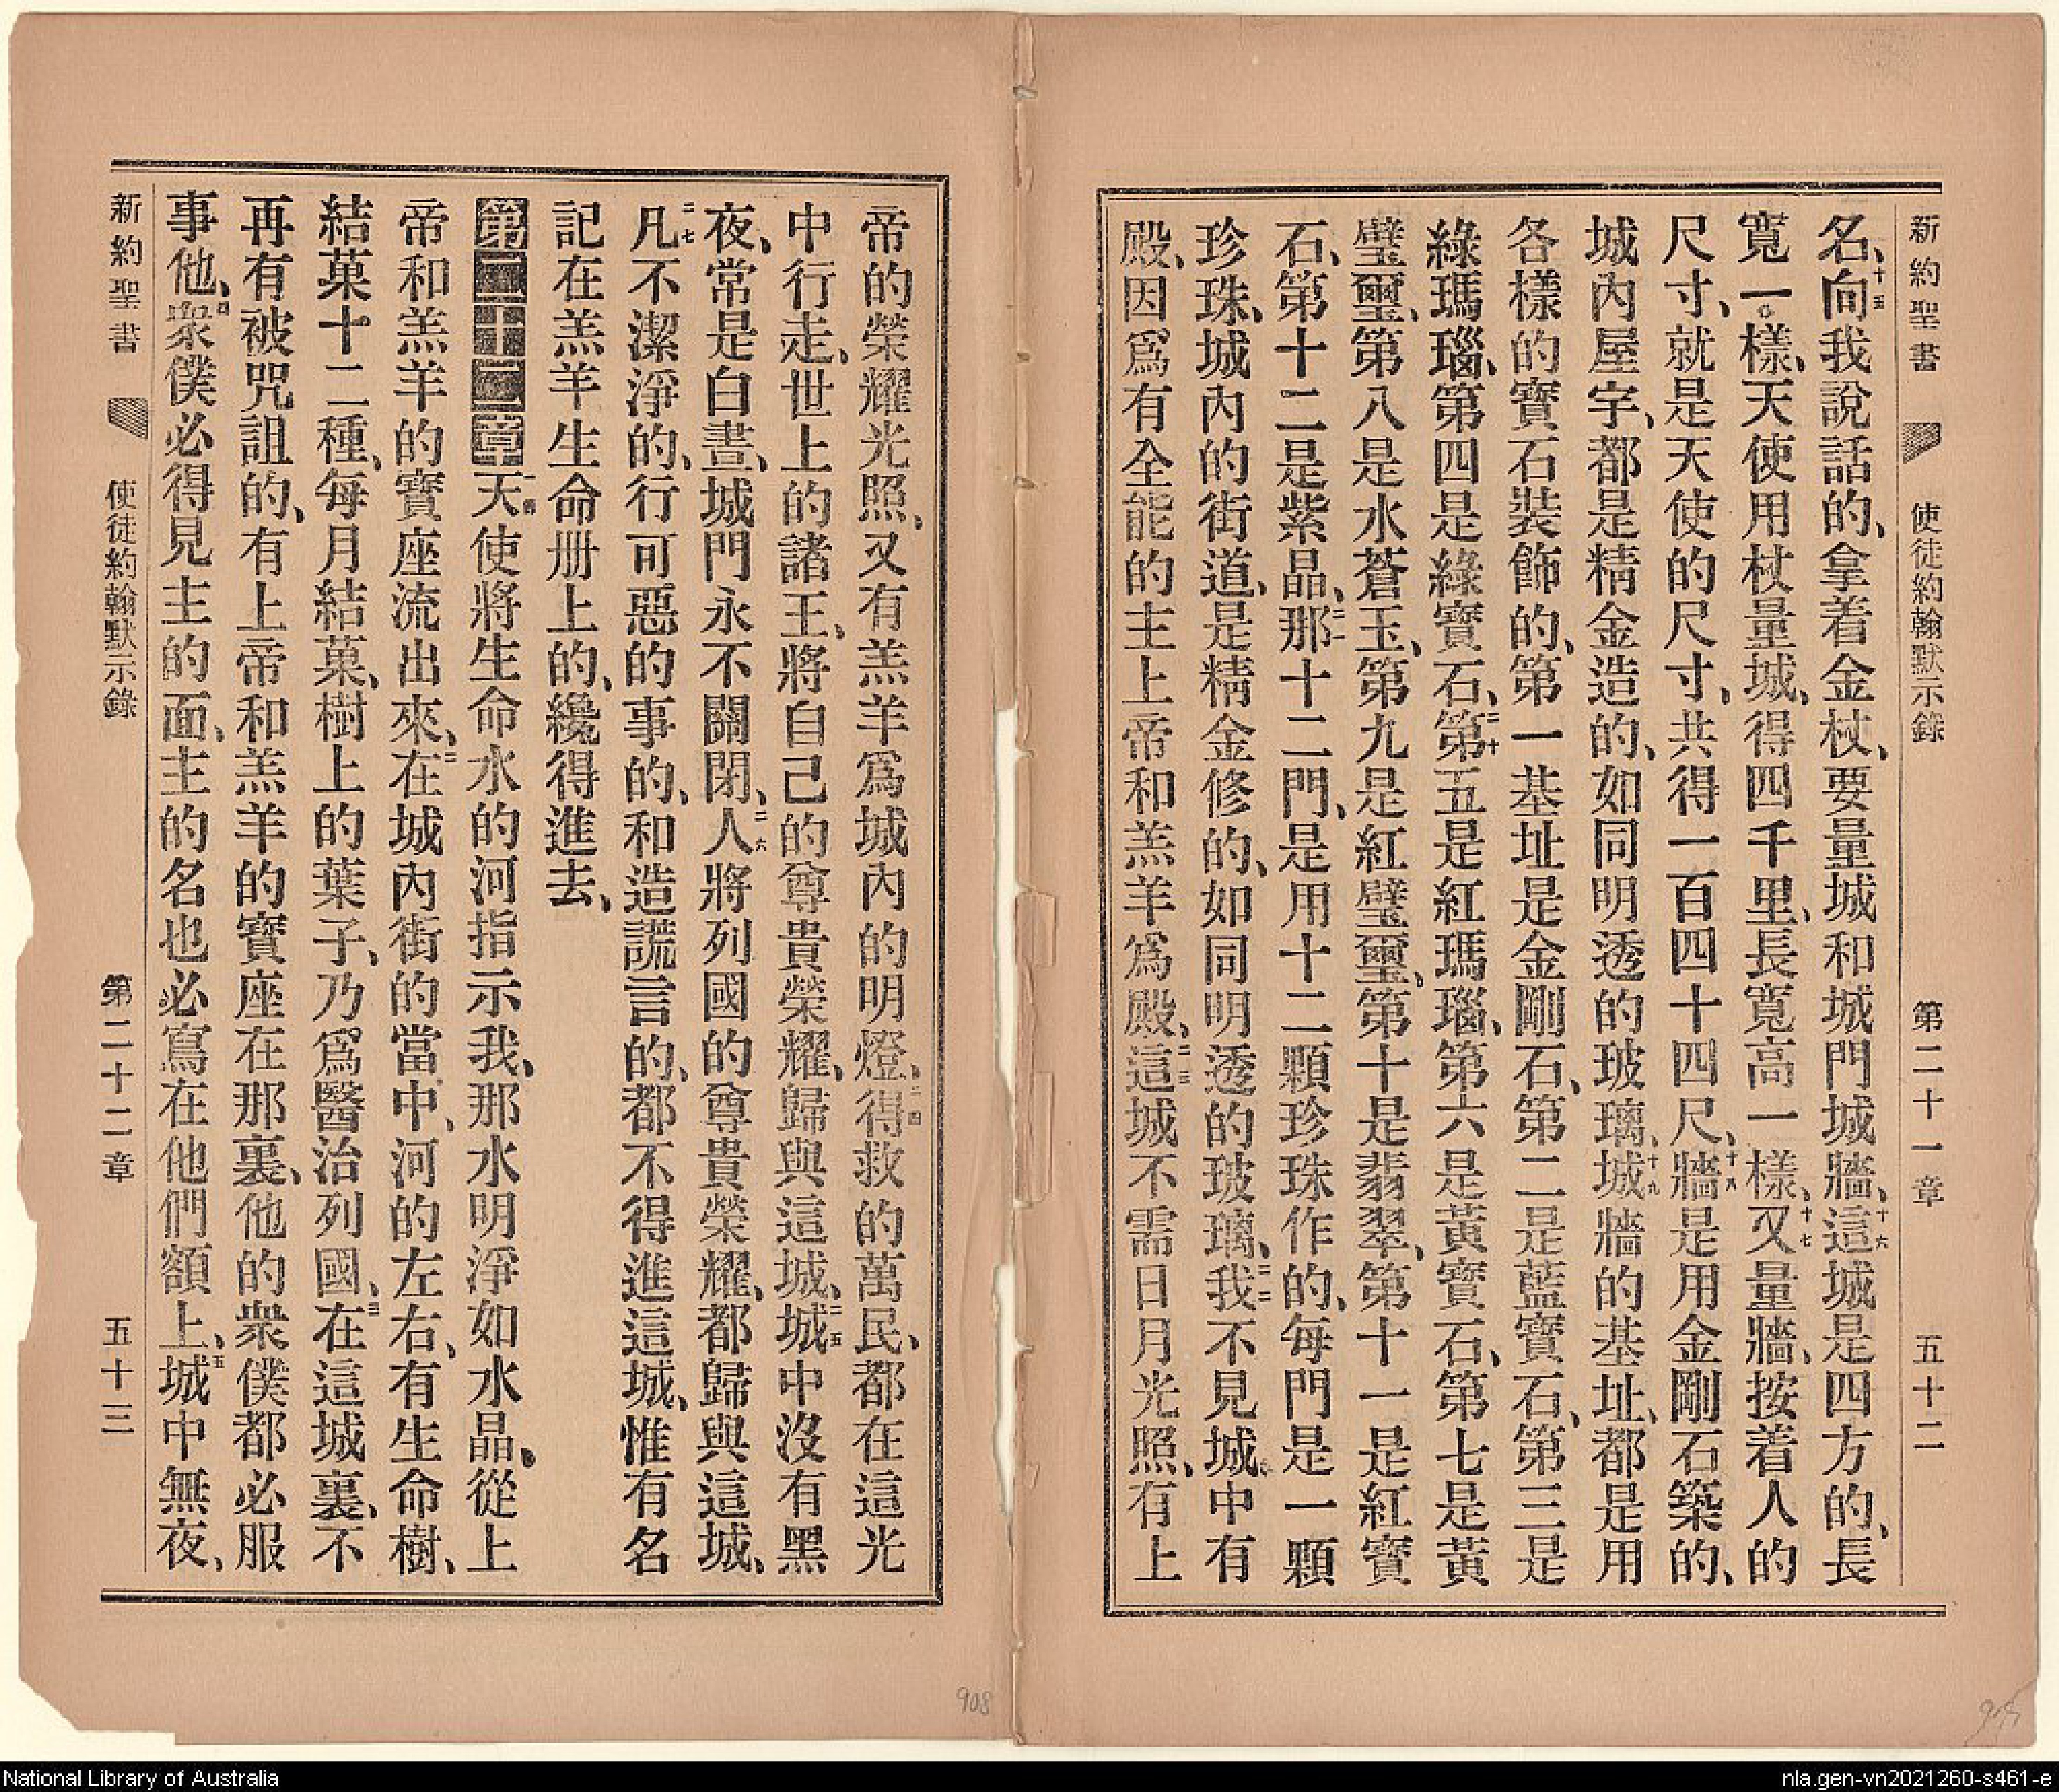 新約聖書 使徒約翰默示錄 第二十一章 五十二
名、十五向我說話的、拿着金杖、要量城和城門城牆、十六這城是四方的、長
寬一樣、天使用杖量城、得四千里、長寬高一樣、十七又量牆、按着人的
尺寸、就是天使的尺寸、共得一百四十四尺、十八牆是用金剛石築的、
城內屋宇、都是精金造的、如同明透的玻璃、十九城牆的基址、都是用
各樣的寶石裝飾的、第一基址是金剛石、第二是藍寶石、第三是
綠瑪瑙、第四是綠寶石、二十第五是紅瑪瑙、第六是黃寶石、第七是黃
璧璽、第八是水蒼玉、第九是紅璧璽、第十是翡翠、第十一是紅寶
石、第十二是紫晶、二一那十二門、是用十二顆珍珠作的、每門是一顆
珍珠、城內的街道、是精金修的、如同明透的玻璃、二二我不見城中有
殿、因爲有全能的主上帝和羔羊爲殿、二三這城不需日月光照、有上
帝的榮耀光照、又有羔羊爲城內的明燈、二四得救的萬民、都在這光
中行走、世上的諸王、將自己的尊貴榮耀、歸與這城、二五城中沒有黑
夜、常是白晝、城門永不關閉、二六人將列國的尊貴榮耀、都歸與這城、
二七凡不潔淨的、行可惡的事的、和造謊言的、都不得進這城、惟有名
記在羔羊生命册上的、纔得進去、
第二十二章 一節天使將生命水的河指示我、那水明淨如水晶、從上
帝和羔羊的寶座流出來、二在城內街的當中、河的左右、有生命樹、
結菓十二種、每月結菓、樹上的葉子、乃爲醫治列國、三在這城裏、不
再有被咒詛的、有上帝和羔羊的寶座在那裏、他的衆僕都必服
事他、四衆僕必得見主的面、主的名也必寫在他們額上、五城中無夜、
新約聖書 使徒約翰默示錄 第二十二章 五十三
908
National Library of Australia
nla.gen-vn2021260-s461-e